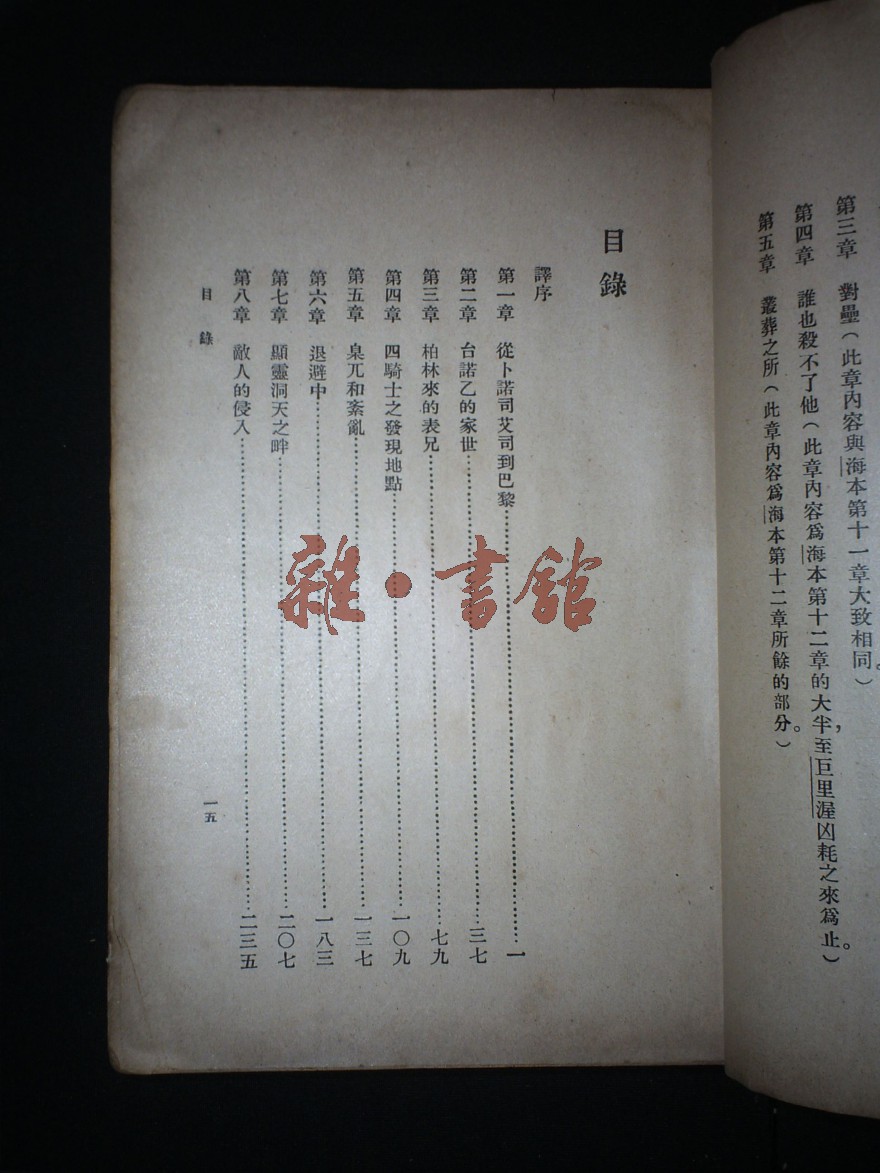 第三章　對壘（此章內容與海本第十一章大致相同。）
第四章　誰也殺不了他（此章內容爲海本第十二章的大半，至巨里渥凶耗之來爲止。）
第五章　叢葬之所（此章內容爲海本第十二章所餘的部分。）
目錄
譯序
第一章　從卜諾司艾司到巴黎……一
第二章　台諾乙的家世……三七
第三章　柏林來的表兄……七九
第四章　四騎士之發現地點……一〇九
第五章　臬兀和紊亂……一三七
第六章　退避中……一八三
第七章　顯靈洞天之畔……二〇七
第八章　敵人的侵入……二三五
目錄
一五
雜・書館